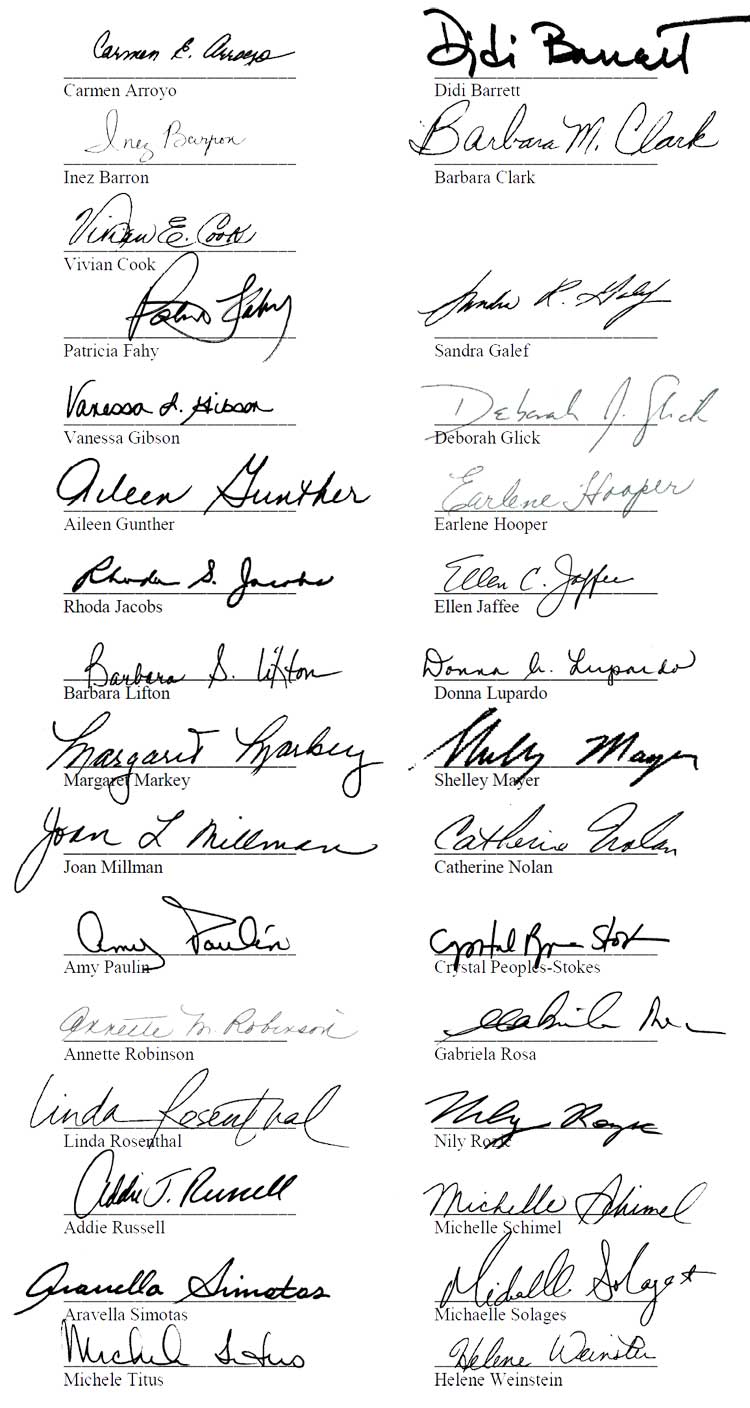 Carmen E. Arroyo
Didi Barrett
Carmen Arroyo
Didi Barrett
Inez Barron
Barbara M. Clark
Inez Barron
Barbara Clark
Vivian E. Cook
Vivian Cook
Fahy
Sandra R. Galef
Patricia Fahy
Sandra Galef
Vanessa L. Gibson
Deborah J. Glick
Vanessa Gibson
Deborah Glick
Aileen Gunther
Earlene Hooper
Aileen Gunther
Earlene Hooper
Rhoda S. Jacobs
Ellen C. Jaffee
Rhoda Jacobs
Ellen Jaffee
Barbara S. Lifton
Donna A. Lupardo
Barbara Lifton
Donna Lupardo
Margaret Markey
Shelley Mayer
Margaret Markey
Shelley Mayer
Joan L Millman
Catherine Nolan
Joan Millman
Catherine Nolan
Amy Paulin
Crystal
Amy Paulin
Crystal Peoples-Stokes
Annette M. Robinson
Gabriela
Annette Robinson
Gabriela Rosa
Linda Rosenthal
Nily Rozic
Linda Rosenthal
Nily Rozic
Addie J. Russell
Michelle Schimel
Addie Russell
Michelle Schimel
Aravella Simotas
Solages
Aravella Simotas
Michaelle Solages
Michele Titus
Helene Weinstein
Michele Titus
Helene Weinstein